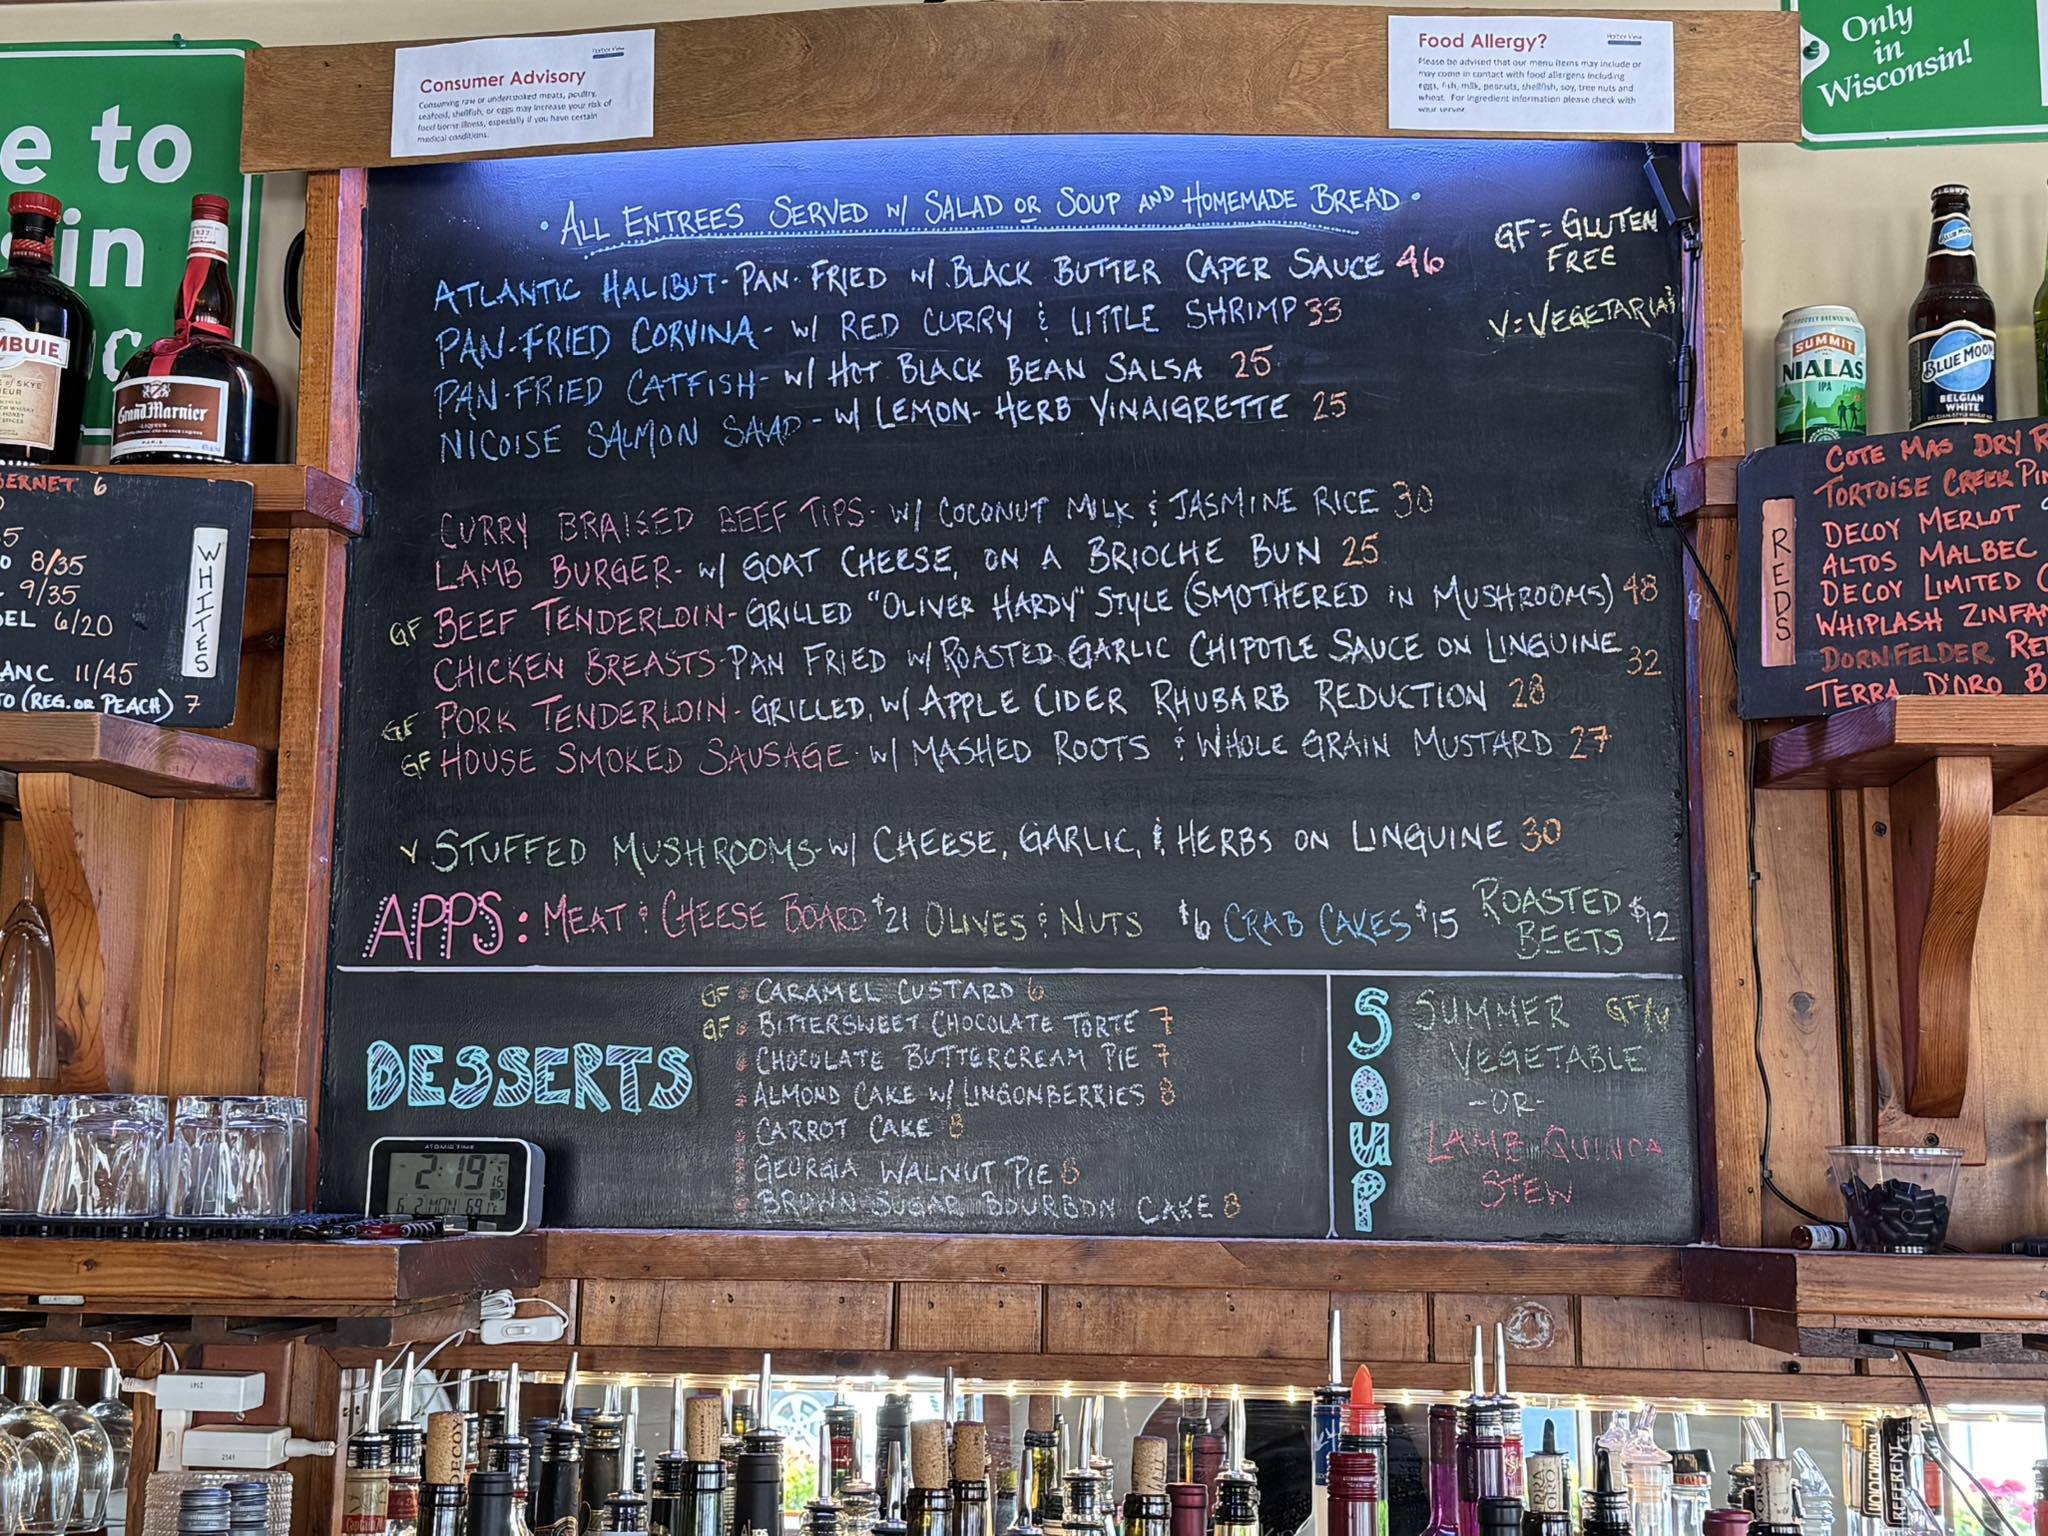 e to
in
Consumer Advisory
Harbor View
Consuming raw or undercooked meats, poultry,
seafood, shellfish, or eggs may increase your risk of
food borne illness, especially if you have certain
medical conditions.
Food Allergy?
Harbor View
Please be advised that our menu items may include or
may come in contact with food allergens including
eggs, fish, milk, peanuts, shellfish, soy, tree nuts and
wheat. For ingredient information please check with
your server.
Only
in
Wisconsin!
• ALL ENTREES SERVED W/ SALAD OR SOUP AND HOMEMADE BREAD •
GF = GLUTEN
FREE
V = VEGETARIAN
ATLANTIC HALIBUT - PAN-FRIED W/ BLACK BUTTER CAPER SAUCE 46
PAN-FRIED CORVINA - W/ RED CURRY & LITTLE SHRIMP 33
PAN-FRIED CATFISH - W/ HOT BLACK BEAN SALSA 25
NICOISE SALMON SALAD - W/ LEMON-HERB VINAIGRETTE 25
CURRY BRAISED BEEF TIPS - W/ COCONUT MILK & JASMINE RICE 30
LAMB BURGER - W/ GOAT CHEESE, ON A BRIOCHE BUN 25
GF BEEF TENDERLOIN - GRILLED "OLIVER HARDY" STYLE (SMOTHERED IN MUSHROOMS) 48
CHICKEN BREASTS - PAN FRIED W/ ROASTED GARLIC CHIPOTLE SAUCE ON LINGUINE 32
GF PORK TENDERLOIN - GRILLED, W/ APPLE CIDER RHUBARB REDUCTION 28
GF HOUSE SMOKED SAUSAGE - W/ MASHED ROOTS & WHOLE GRAIN MUSTARD 27
V STUFFED MUSHROOMS - W/ CHEESE, GARLIC, & HERBS ON LINGUINE 30
APPS: MEAT & CHEESE BOARD $21 OLIVES & NUTS $6 CRAB CAKES $15 ROASTED BEETS $12
DESSERTS
GF • CARAMEL CUSTARD 6
GF • BITTERSWEET CHOCOLATE TORTE 7
• CHOCOLATE BUTTERCREAM PIE 7
• ALMOND CAKE W/ LINGONBERRIES 8
• CARROT CAKE 8
• GEORGIA WALNUT PIE 8
• BROWN SUGAR BOURBON CAKE 8
SOUP
SUMMER GF/V
VEGETABLE
-OR-
LAMB QUINOA
STEW
ATOMIC TIME
2:19 15
6 2 MON 69
MBUIE
Grand Marnier
LIQUEUR
BERNET 6
8/35
9/35
EL 6/20
ANC 11/45
TO (REG. OR PEACH) 7
WHITES
SUMMIT
NIALAS
IPA
BLUE MOON
BELGIAN
WHITE
REDS
COTE MAS DRY R
TORTOISE CREEK PIN
DECOY MERLOT
ALTOS MALBEC
DECOY LIMITED
WHIPLASH ZINFAN
DORNFELDER RE
TERRA D'ORO B
2141
2141
DECOY